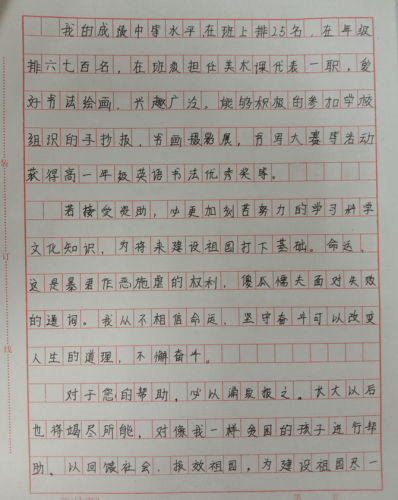 我的成绩中等水平在班上排25名，在年级
排六七百名，在班级担任美术课代表一职，爱
好书法绘画，兴趣广泛，能够积极的参加学校
组织的手抄报，书画摄影展，书写大赛等活动
获得高一年级英语书法优秀奖等。
若接受资助，必更加刻苦努力的学习科学
文化知识，为将来建设祖国打下基础。命运，
这是暴君作恶施虐的权利，傻瓜懦夫面对失败
的遁词。我从不相信命运，坚守奋斗可以改变
人生的道理，不懈奋斗。
对于您的帮助，必以涌泉报之。长大以后
也将竭尽所能，对像我一样贫困的孩子进行帮
助，以回馈社会，报效祖国，为建设祖国尽一
装
订
线